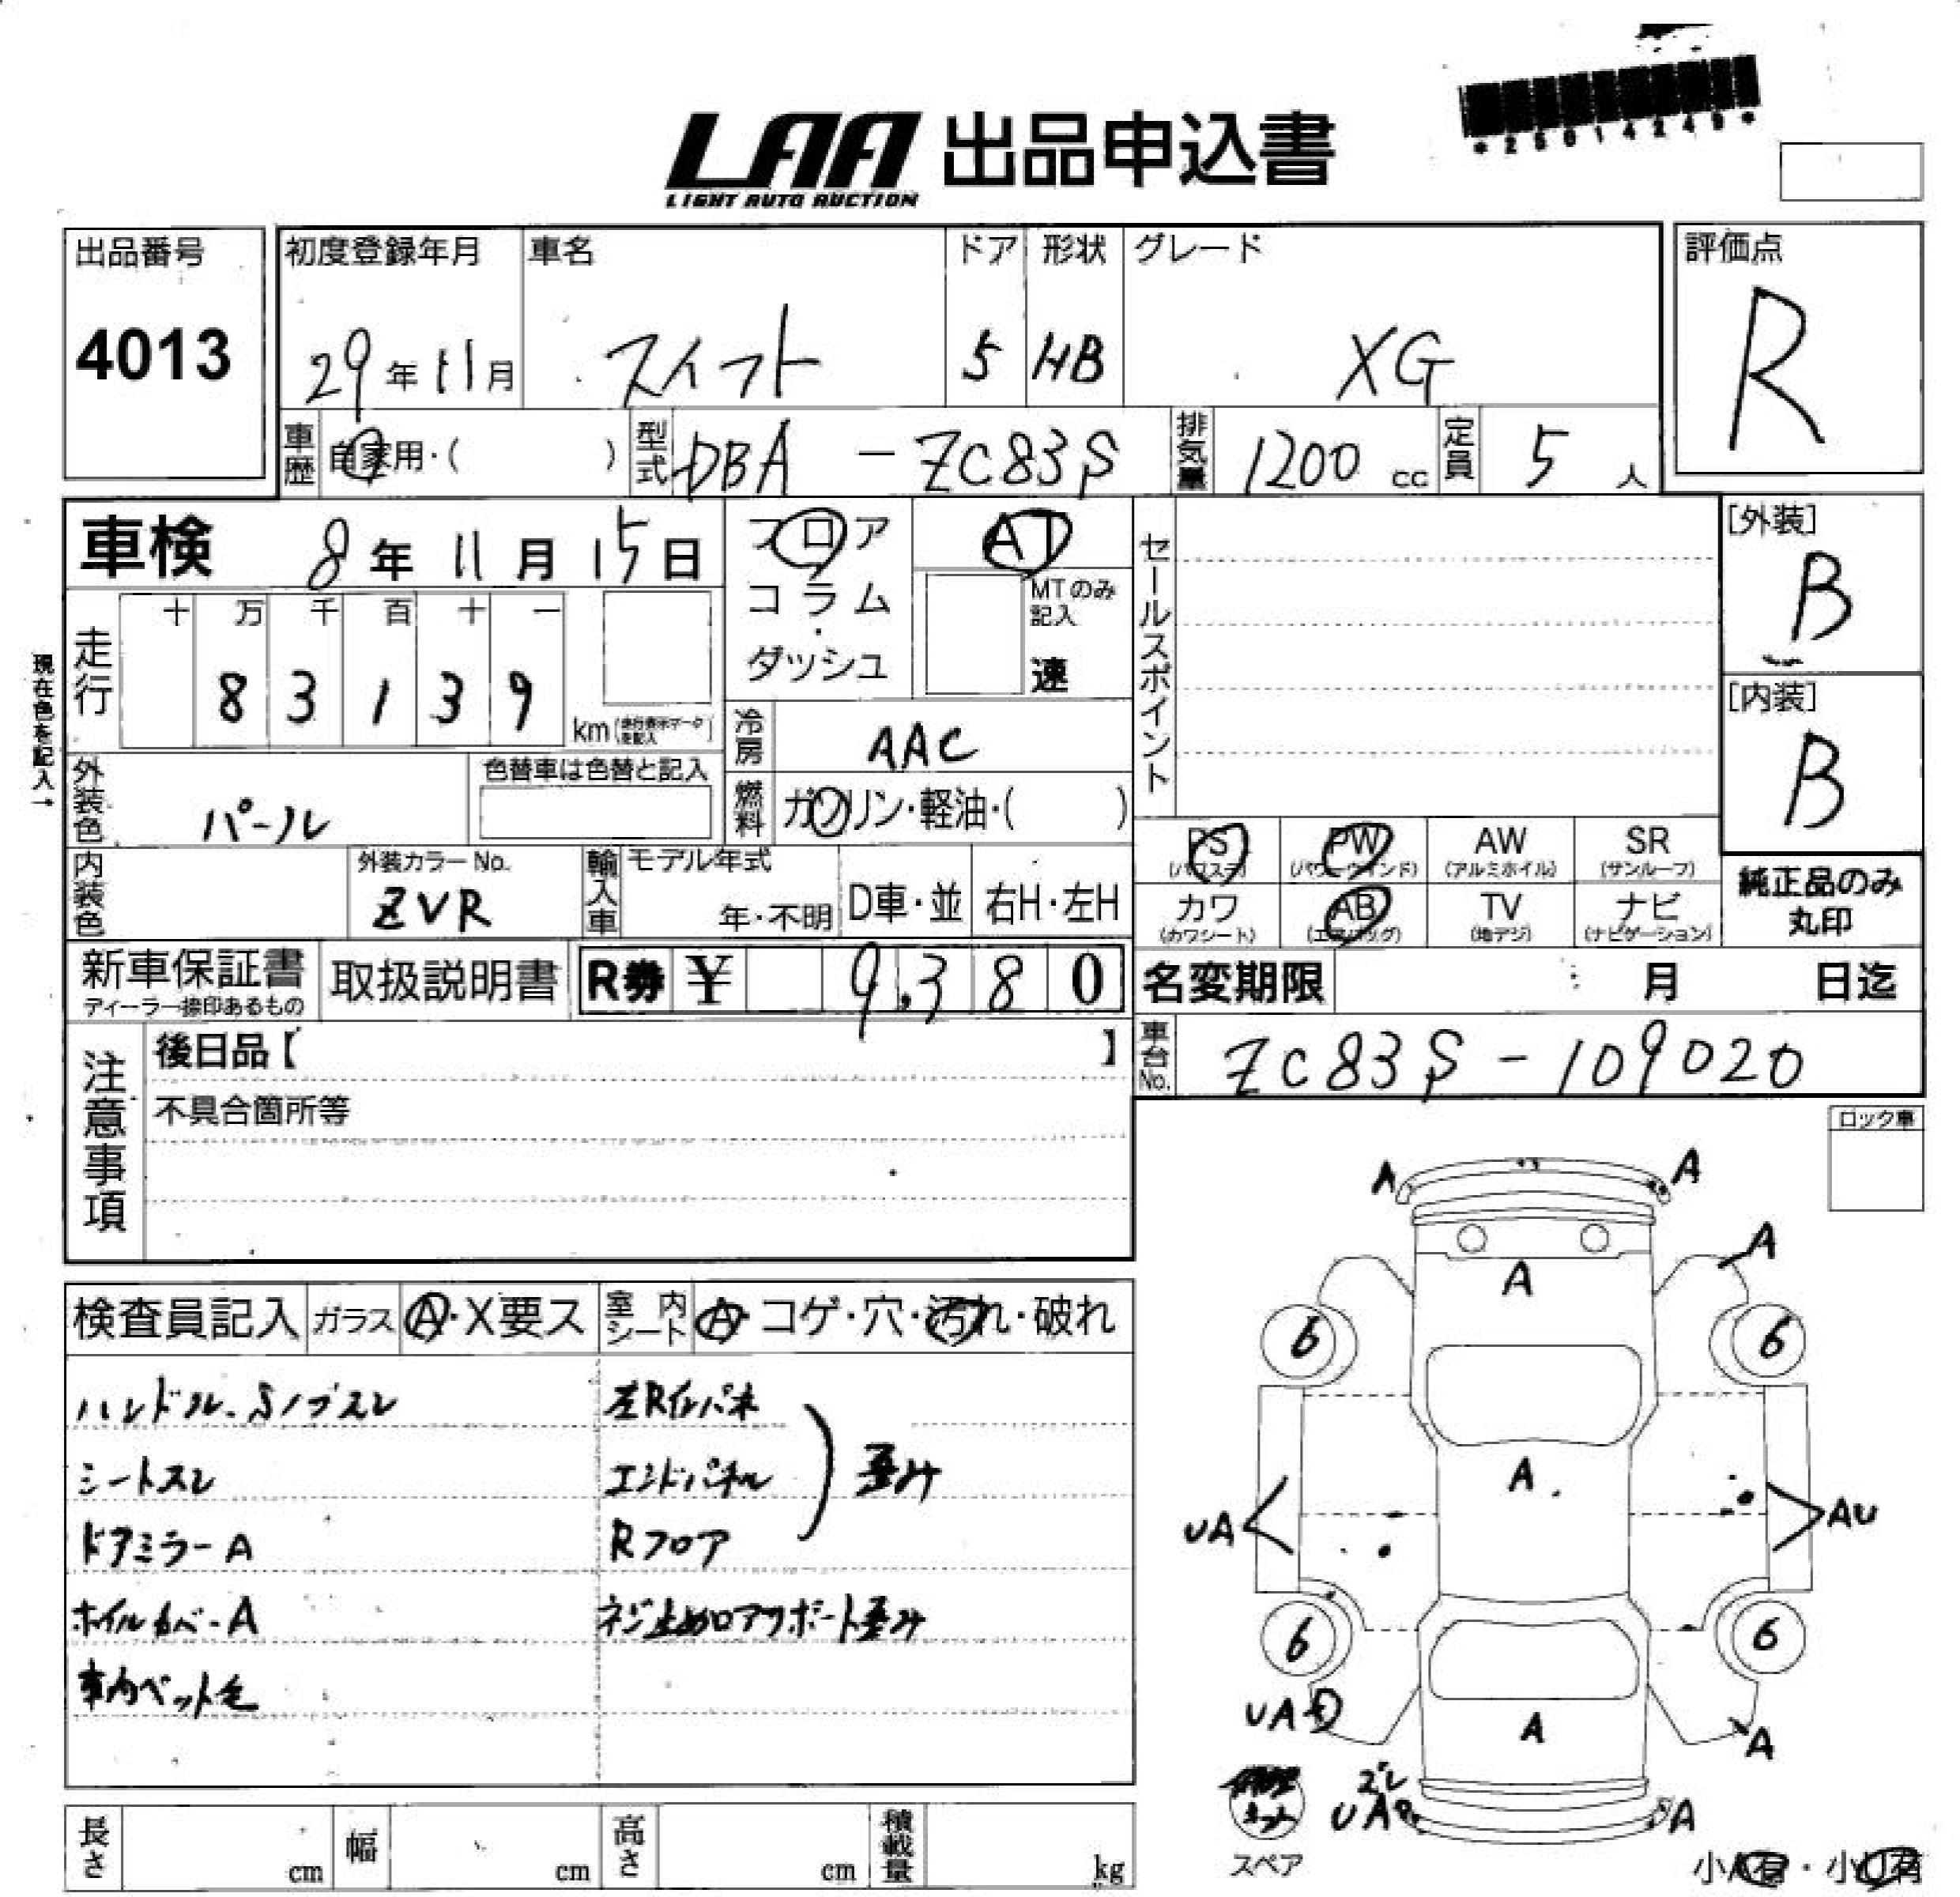 *25014249*
LAA 出品申込書
LIGHT AUTO AUCTION
出品番号 初度登録年月 車名 ドア 形状 グレード 評価点
4013 29年11月 スイフト 5 HB XG R
車歴 自家用・( ) 型式 DBA-ZC83S 排気量 1200cc 定員 5人
車検 8年11月15日 フロア AT セールスポイント [外装]
コラム・ MTのみ記入 B
ダッシュ 速
現在色を記入→
走行 十 万 千 百 十 一
8 3 1 3 9 km(走行表示マークを記入) [内装]
冷房 AAC B
外装色 パール 色替車は色替と記入 燃料 ガソリン・軽油・( )
PS(パワステ) PW(パワーウインド) AW(アルミホイル) SR(サンルーフ)
カワ(カワシート) AB(エアバッグ) TV(地デジ) ナビ(ナビゲーション) 純正品のみ丸印
内装色 外装カラーNo. ZVR 輸入車 モデル年式 年・不明 D車・並 右H・左H
新車保証書 ディーラー捺印あるもの 取扱説明書 R券 ¥ 9,380 名変期限 月 日迄
車台No. ZC83S-109020
注意事項 後日品【 】
不具合箇所等
ロック車
検査員記入 ガラス A・X要ス 室内シート A・コゲ・穴・汚れ・破れ
ハンドル、Sノブスレ 左Rインパネ
シートスレ エンドパネル 歪み
ドアミラーA Rフロア
ホイルカバーA ネジ止めロアサポート歪み
車内ペット毛
A A
A
A
6 6
A
UA AU
6 6
UA
A
A
ズレ
UA A
スペア
小A有・小U有
長さ cm 幅 cm 高さ cm 積載量 kg